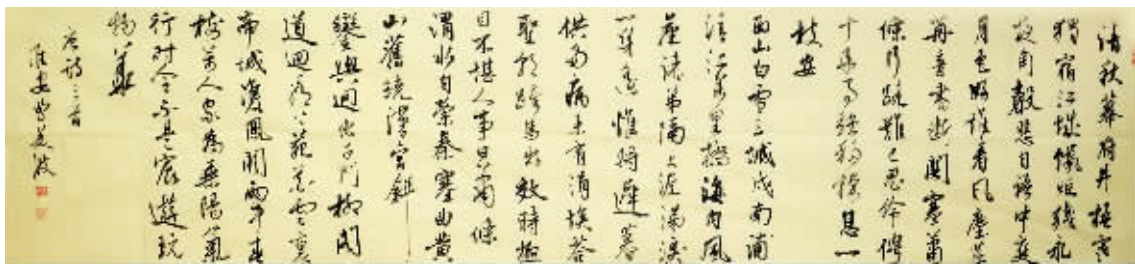 清秋幕府井梧寒
獨宿江城蠟炬殘永
夜角聲悲自語中
月色好誰看風塵荏
苒音書斷關塞蕭
條行路難已忍伶俜
十年事強移棲息一
枝安
西山白雪三城戍南浦
清江萬里橋海內風
塵諸弟隔天涯涕淚
一身遙惟將遲暮
供多病未有涓埃答
聖朝跨馬出郊時極
目不堪人事日蕭條
渭水自縈秦塞曲黃
山舊繞漢宮斜
鑾輿迥出千門柳閣
道迴看上苑花雲裏
帝城雙鳳闕雨中春
樹萬人家為乘陽氣
行時令不是宸遊玩
物華
唐詩三首
淮安